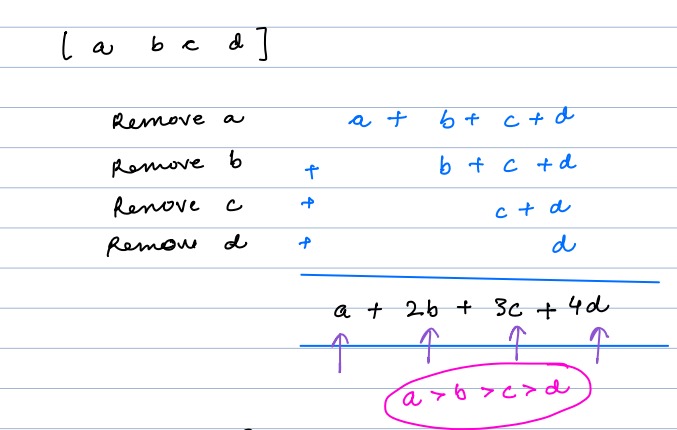 [ a b c d ]
Remove a a + b + c + d
Remove b + b + c + d
Remove c + c + d
Remove d + d
a + 2b + 3c + 4d
↑ ↑ ↑ ↑
a > b > c > d